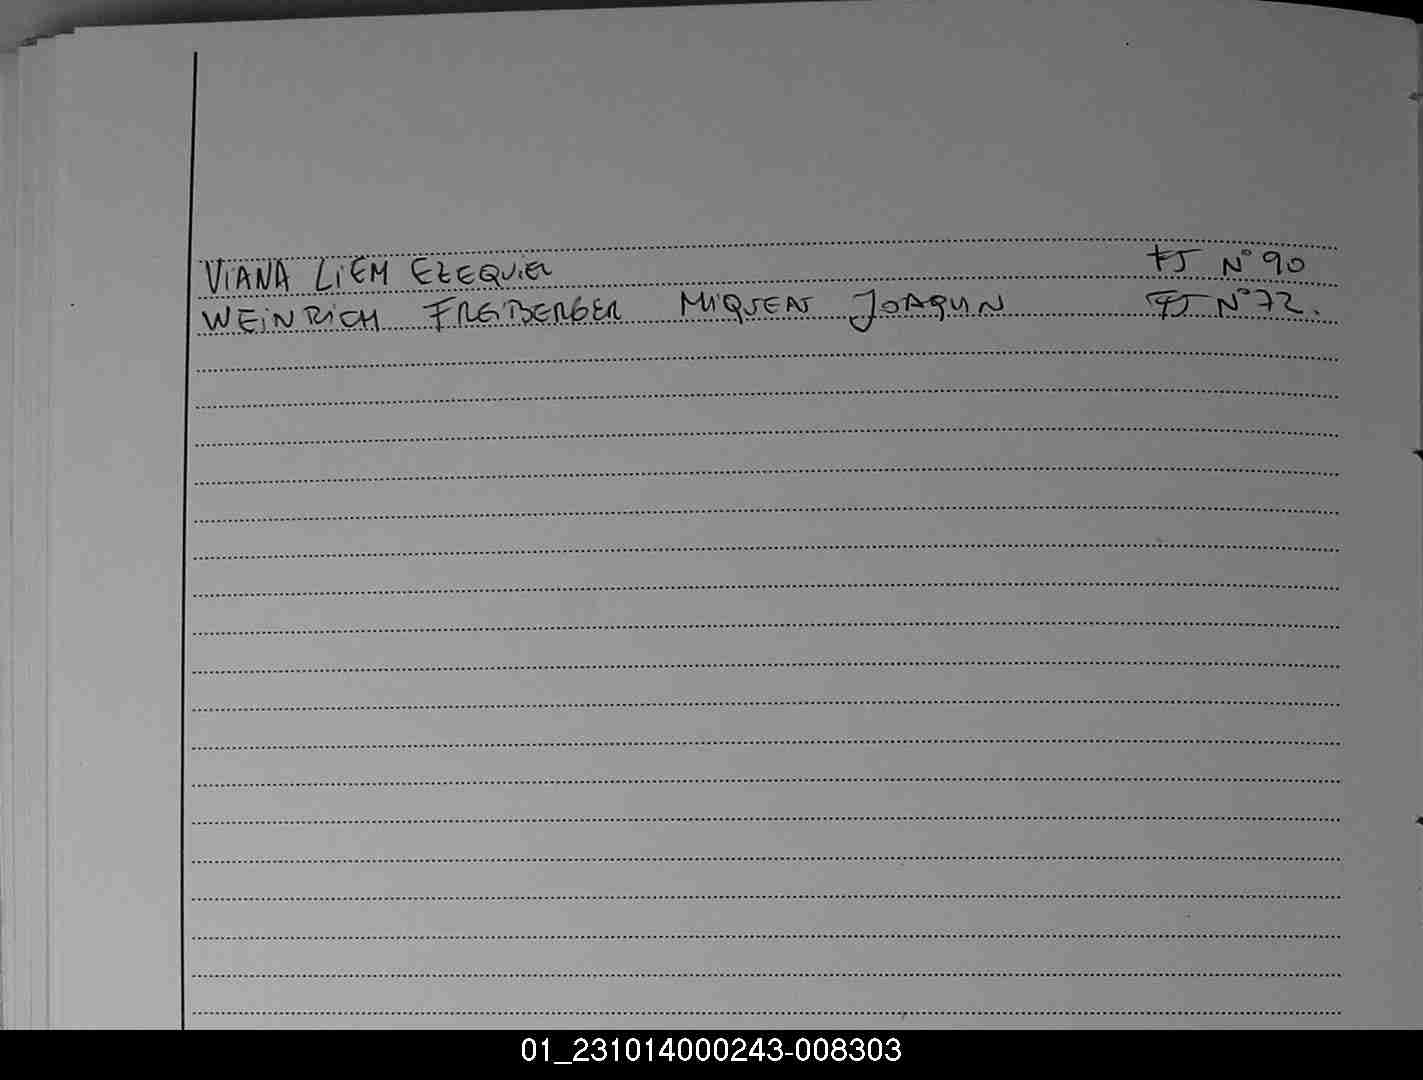 VIANA LIEM EZEQUIEL FJ N° 90
WEINRICH FREIBERGER MIQUEAS JOAQUIN FJ N° 72.
01_231014000243-008303